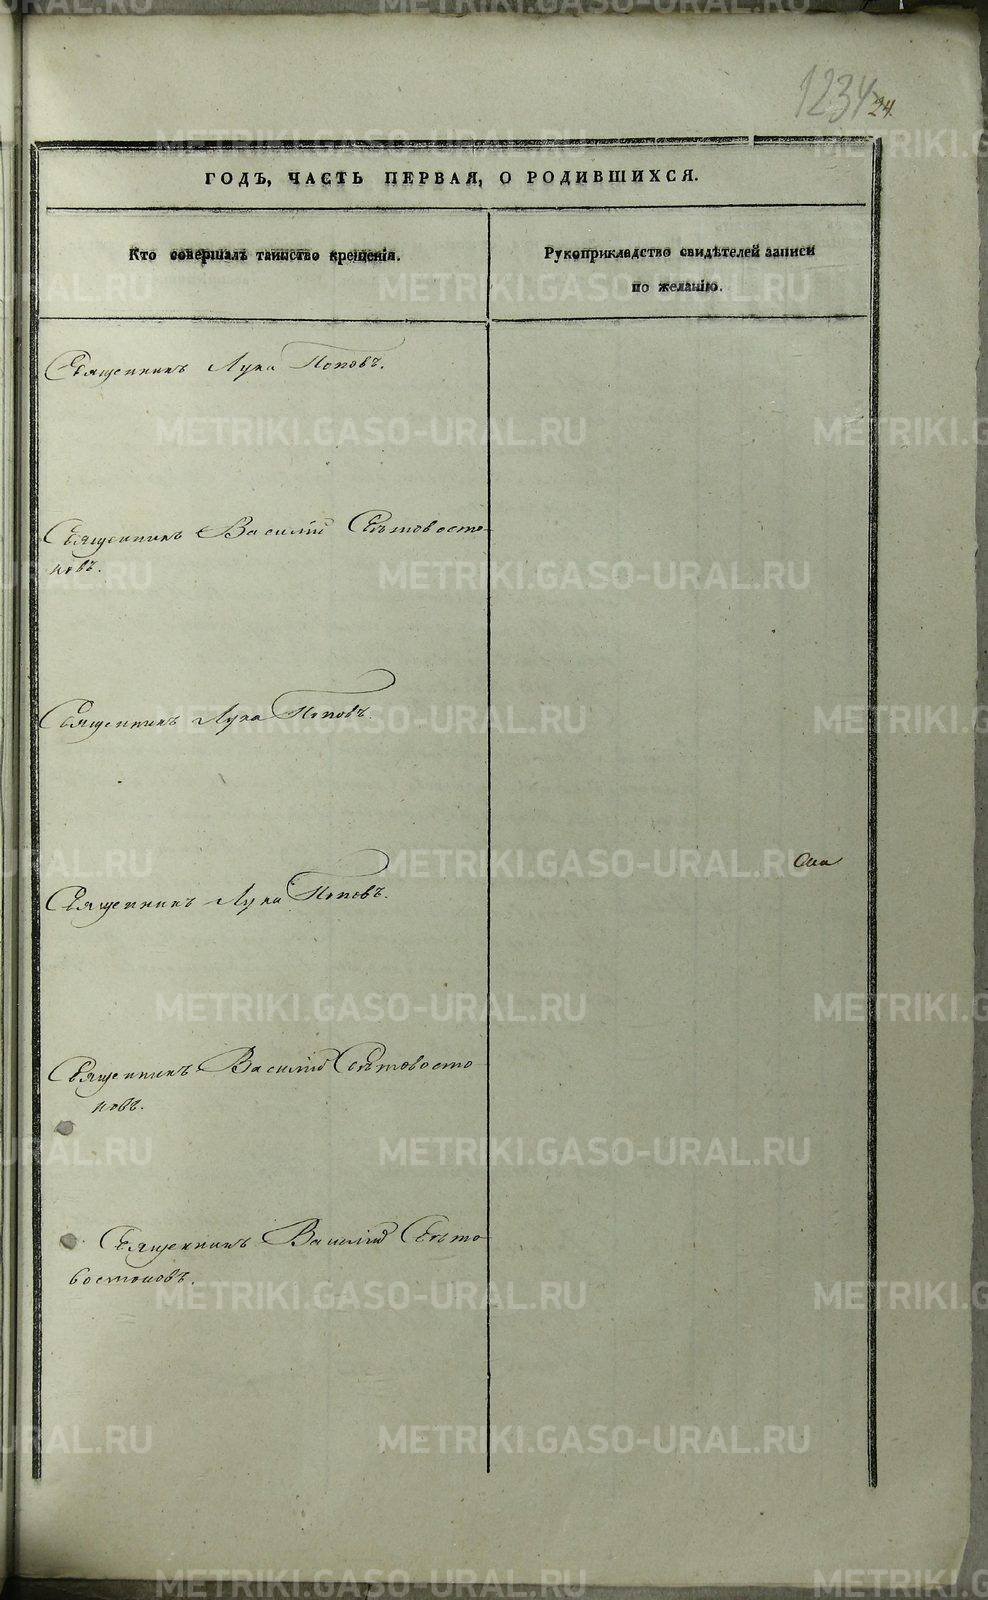 1234 24.
ГОДЪ, ЧАСТЬ ПЕРВАЯ, О РОДИВШИХСЯ.
Кто совершалъ таинство крещенія.
Рукоприкладство свидѣтелей записи
по желанію.
Священникъ Лука Поповъ.
Священникъ Василій Свѣтовосто-
ковъ.
Священникъ Лука Поповъ.
Священникъ Лука Поповъ.
Священникъ Василій Свѣтовосто
ковъ.
Священникъ Василій Свѣто-
востоковъ.
METRIKI.GASO-URAL.RU